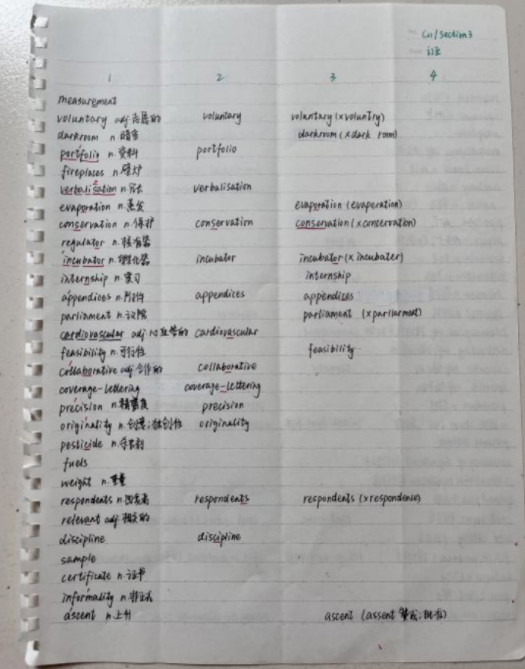 C11/Section3
1 2 3 4
measurement
voluntary adj 志愿的 voluntary voluntary (x voluntry)
darkroom n. 暗室 darkroom (x dark room)
portfolio n. 资料 portfolio
fireplaces n. 壁炉
verbalisation n. 冗长 verbalisation
evaporation n. 蒸发 evaporation (evaperation)
conservation n. 保护 conservation conservation (x concervation)
regulator n.
incubator n. 孵化器 incubator incubator (x incubater)
internship n. 实习 internship
appendices n. 附件 appendices appendices
parliament n. 议院 parliament (x parllarment)
cardiovascular adj 心血管的 cardiovascular
feasibility n. 可行性 feasibility
collaborative adj 合作的 collaborative
coverage-lettering coverage-lettering
precision n. 精密度 precision
originality n. 创意;独创性 originality
pesticide n. 杀虫剂
fuels
weight n. 重量
respondents n. 回应者 respondents respondents (x respondence)
relevant adj 相关的
discipline discipline
sample
certificate n. 证书
informality n. 非正式
ascent n. 上升 ascent (assent 赞成;